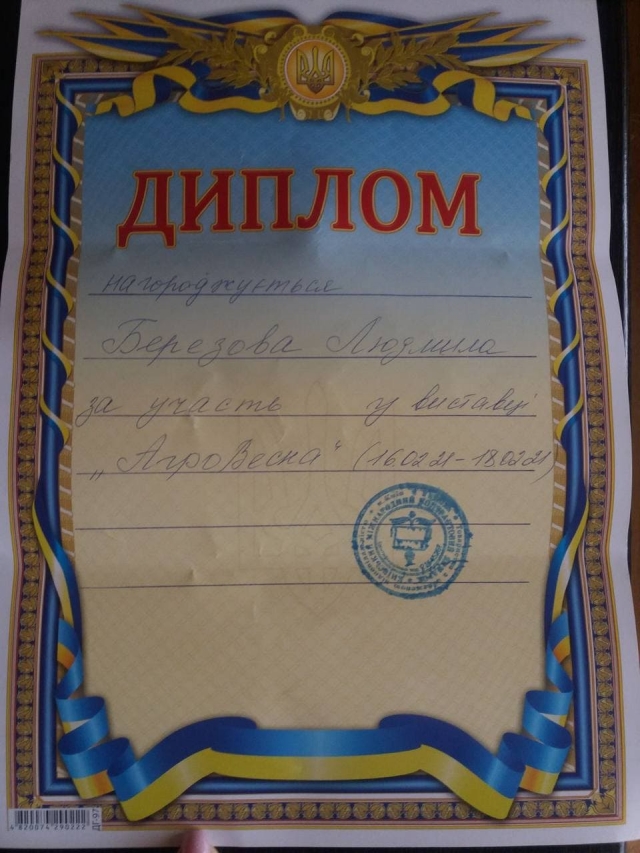 ДИПЛОМ
нагороджується
Березова Людмила
за участь у виставці
„АгроВесна“ (16.02.21-18.02.21)
4820074290222